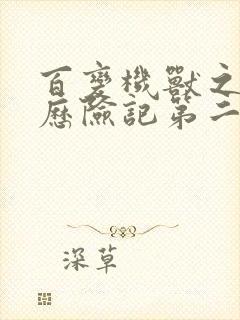 百變機獸之
歷險記第二
深草